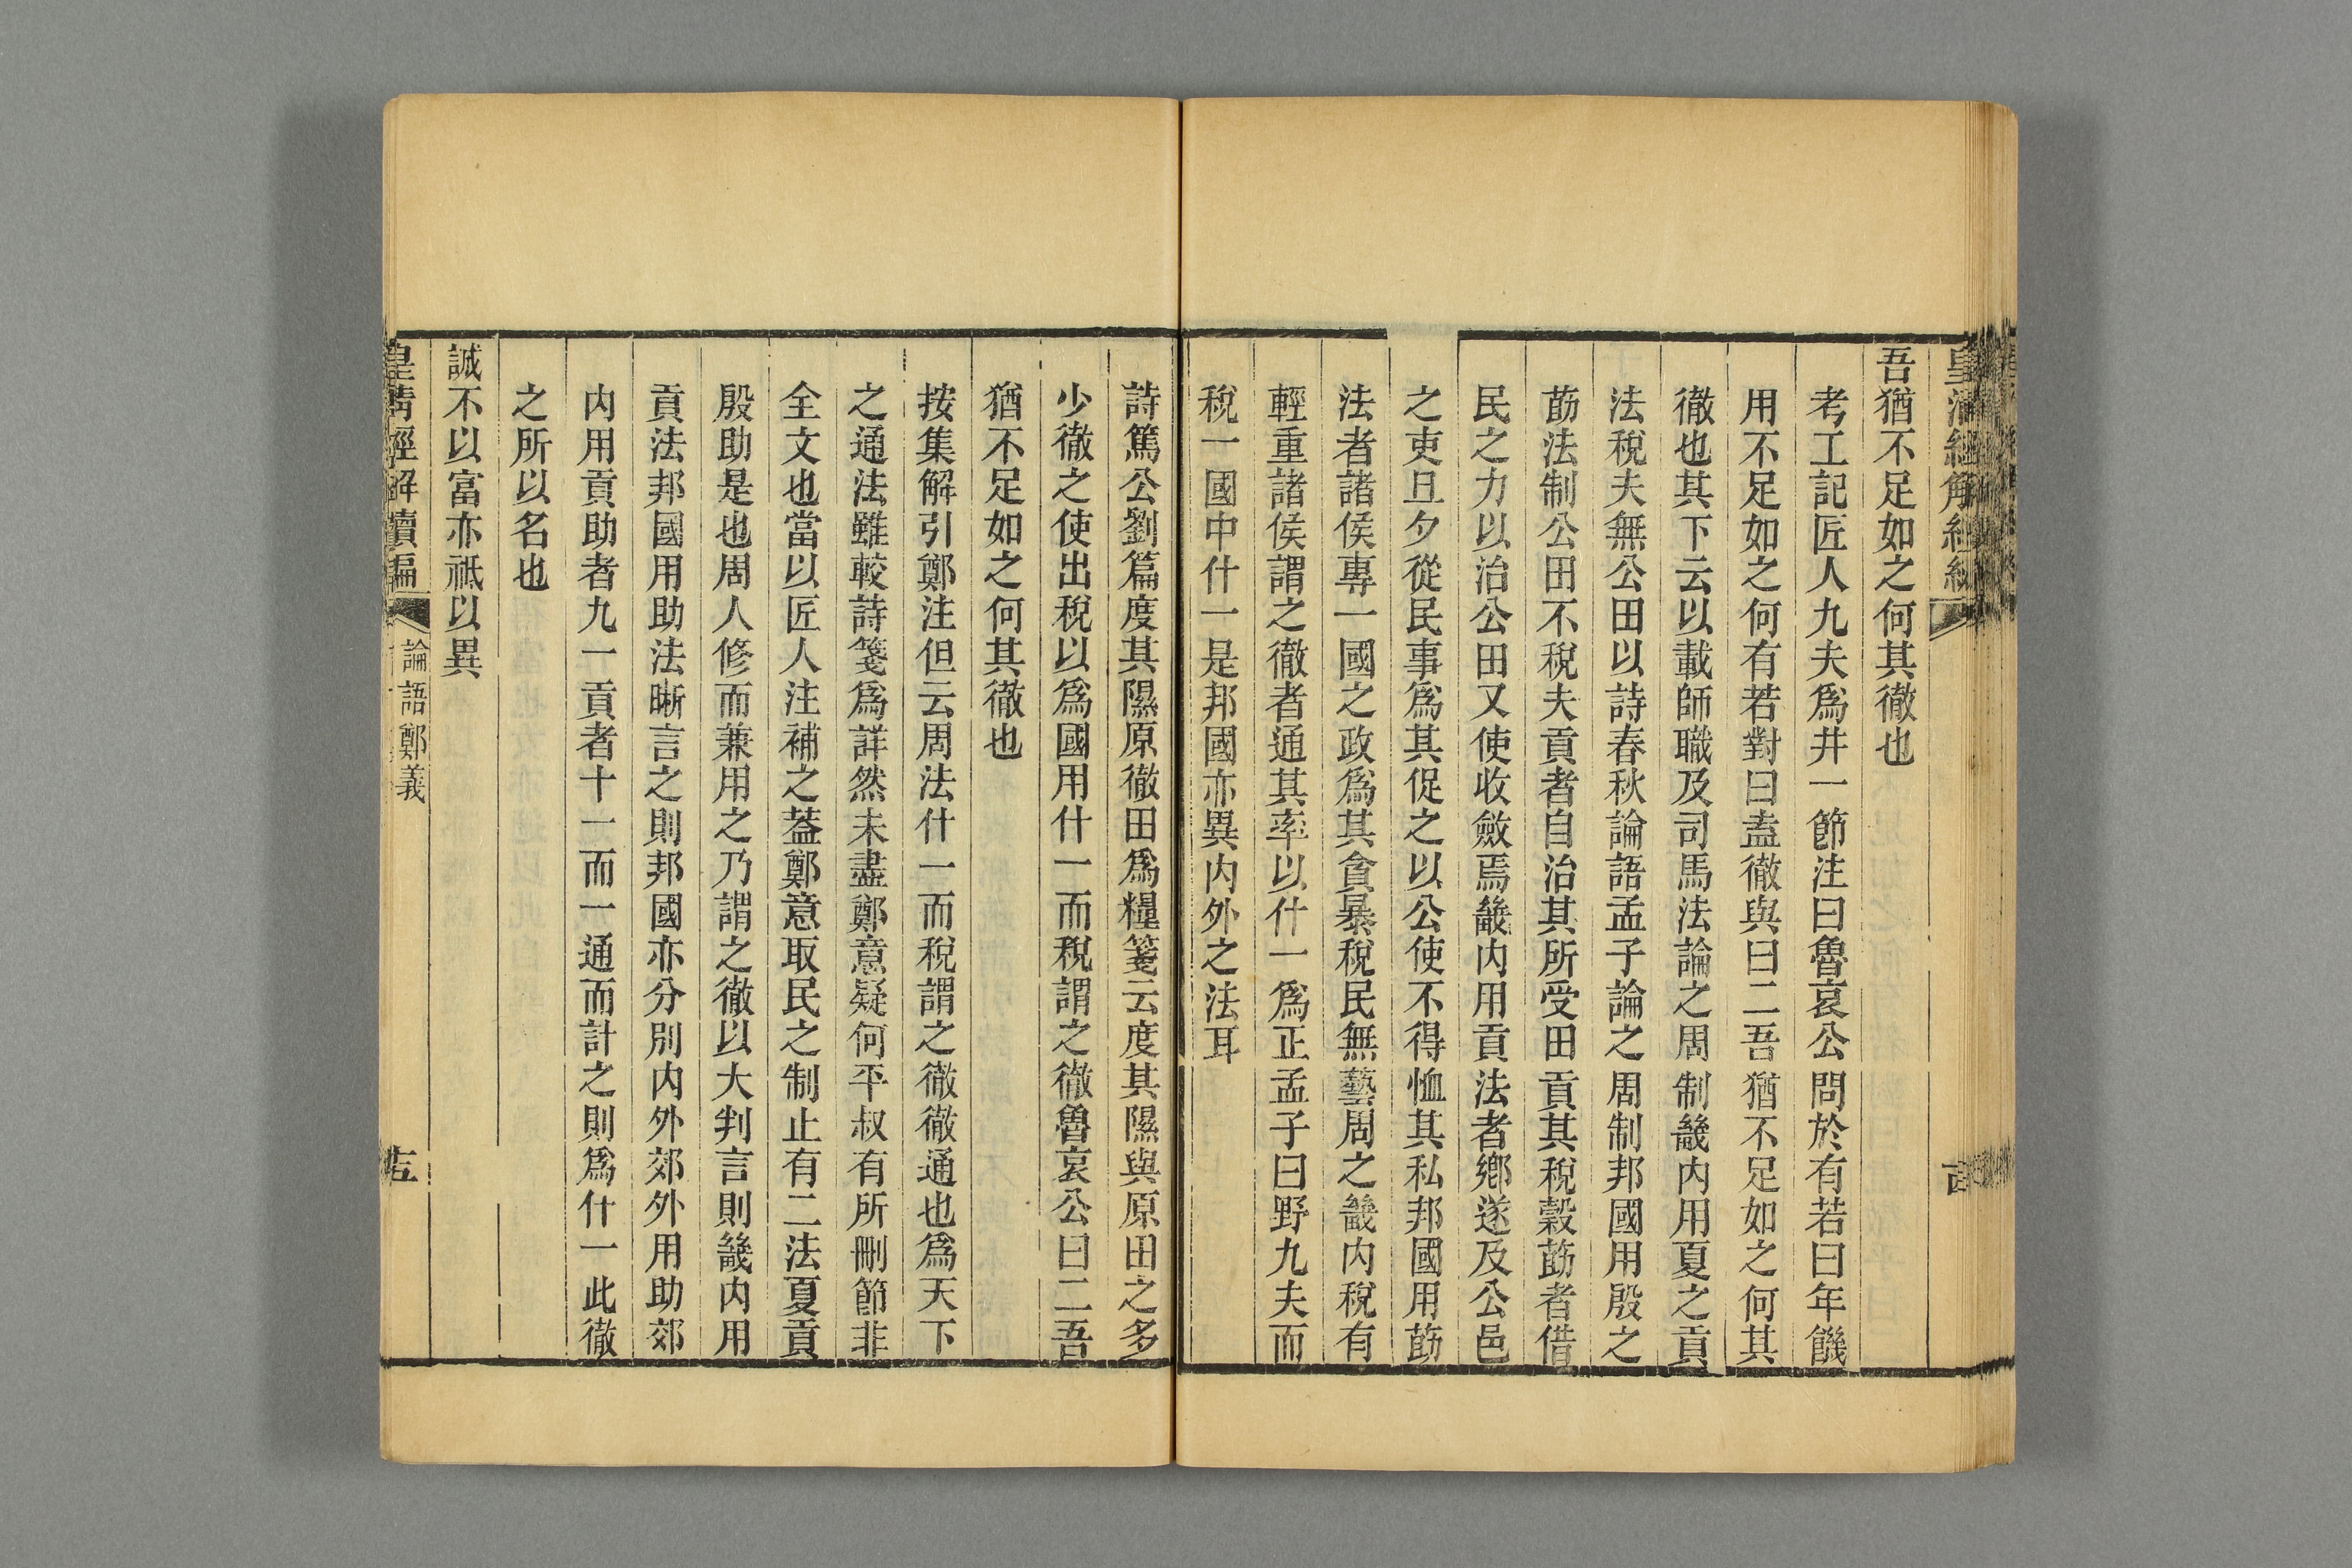 吾猶不足如之何其徹也
考工記匠人九夫爲井一節注曰魯哀公問於有若曰年饑
用不足如之何有若對曰盍徹與曰二吾猶不足如之何其
徹也其下云以載師職及司馬法論之周制畿内用夏之貢
法稅夫無公田以詩春秋論語孟子論之周制邦國用殷之
莇法制公田不稅夫貢者自治其所受田貢其稅穀莇者借
民之力以治公田又使收斂焉畿内用貢法者鄉遂及公邑
之吏旦夕從民事爲其促之以公使不得恤其私邦國用莇
法者諸侯專一國之政爲其貪暴稅民無藝周之畿内稅有
輕重諸侯謂之徹者通其率以什一爲正孟子曰野九夫而
稅一國中什一是邦國亦異内外之法耳
詩篤公劉篇度其隰原徹田爲糧箋云度其隰與原田之多
少徹之使出稅以爲國用什一而稅謂之徹魯哀公曰二吾
猶不足如之何其徹也
按集解引鄭注但云周法什一而稅謂之徹徹通也爲天下
之通法雖較詩箋爲詳然未盡鄭意疑何平叔有所刪節非
全文也當以匠人注補之葢鄭意取民之制止有二法夏貢
殷助是也周人修而兼用之乃謂之徹以大判言則畿内用
貢法邦國用助法晰言之則邦國亦分別内外郊外用助郊
内用貢助者九一貢者十一而一通而計之則爲什一此徹
之所以名也
誠不以富亦祇以異
皇清經解續編
論語鄭義